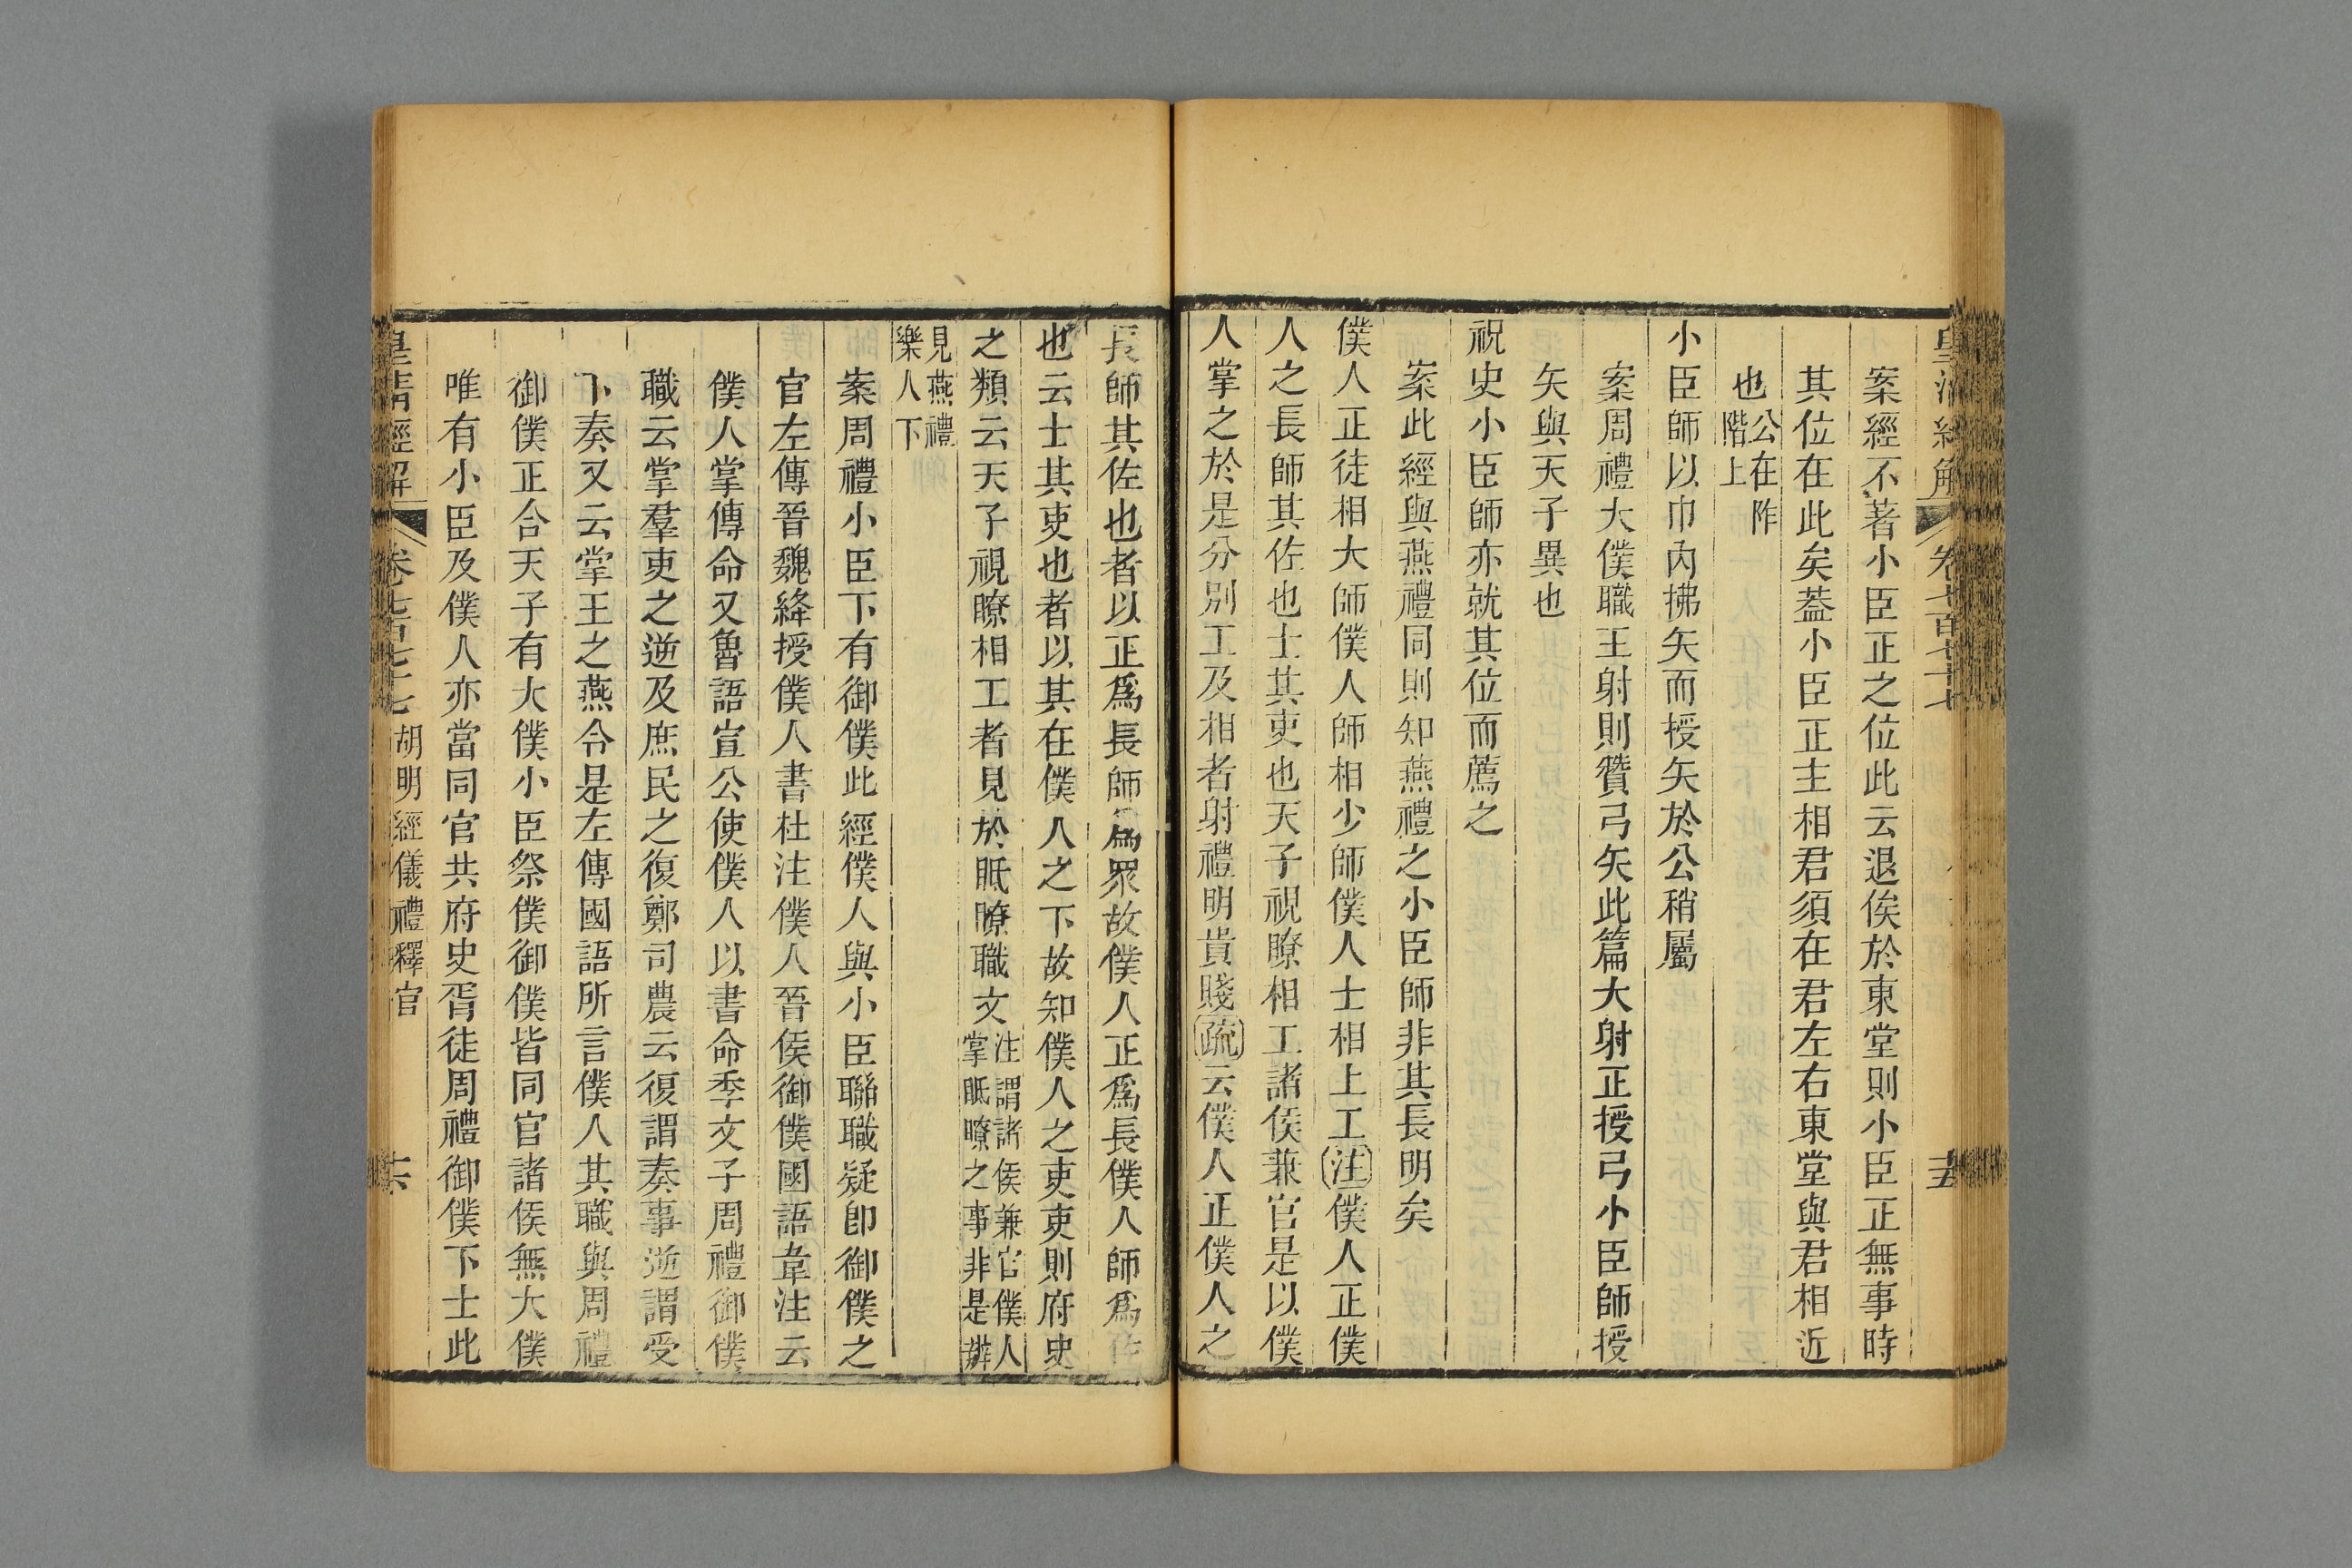 案經不著小臣正之位此云退俟於東堂則小臣正無事時
其位在此矣葢小臣正主相君須在君左右東堂與君相近
也公在阼階上
小臣師以巾內拂矢而授矢於公稍屬
案周禮大僕職王射則贊弓矢此篇大射正授弓小臣師授
矢與天子異也
祝史小臣師亦就其位而薦之
案此經與燕禮同則知燕禮之小臣師非其長明矣
僕人正徒相大師僕人師相少師僕人士相上工注僕人正僕
人之長師其佐也士其吏也天子視瞭相工諸侯兼官是以僕
人掌之於是分別工及相者射禮明貴賤疏云僕人正僕人之
長師其佐也者以正爲長師爲眾故僕人正爲長僕人師爲佐
也云士其吏也者以其在僕人之下故知僕人之吏吏則府史
之類云天子視瞭相工者見於眡瞭職文注謂諸侯兼官僕人掌眡瞭之事非是辦
見燕禮樂人下
案周禮小臣下有御僕此經僕人與小臣聯職疑卽御僕之
官左傳晉魏絳授僕人書杜注僕人晉侯御僕國語韋注云
僕人掌傳命又魯語宣公使僕人以書命季文子周禮御僕
職云掌羣吏之逆及庶民之復鄭司農云復謂奏事逆謂受
下奏又云掌王之燕令是左傳國語所言僕人其職與周禮
御僕正合天子有大僕小臣祭僕御僕皆同官諸侯無大僕
唯有小臣及僕人亦當同官共府史胥徒周禮御僕下士此
皇清經解 卷七百七十七 胡明經儀禮釋官 十六